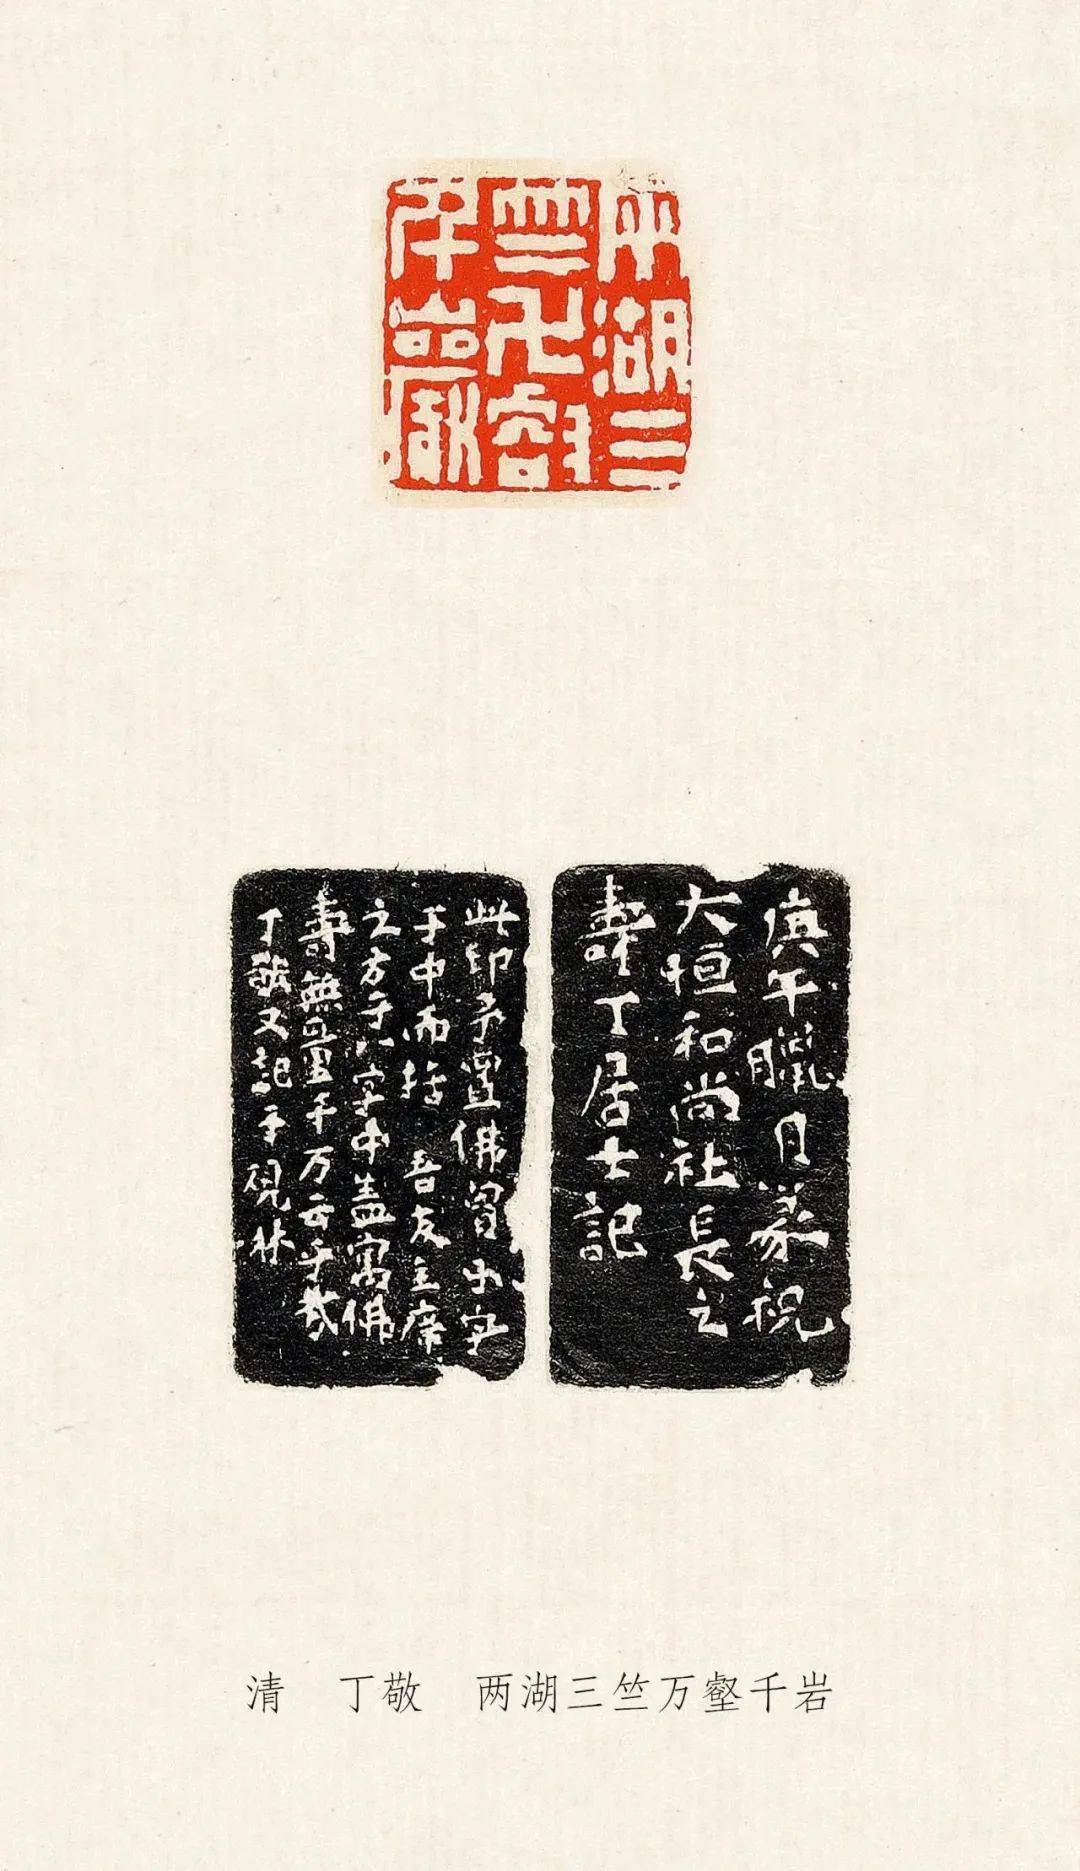 兩湖三
竺卍壑
千巖
庚午臘月篆祝
大恒和尚社長之
壽丁居士記
此印予置佛胷中字
于中而指 吾友主席
之方于八字中盖寓佛
壽無量千万云乎哉
丁敬又記于硯林
清 丁敬 两湖三竺万壑千岩